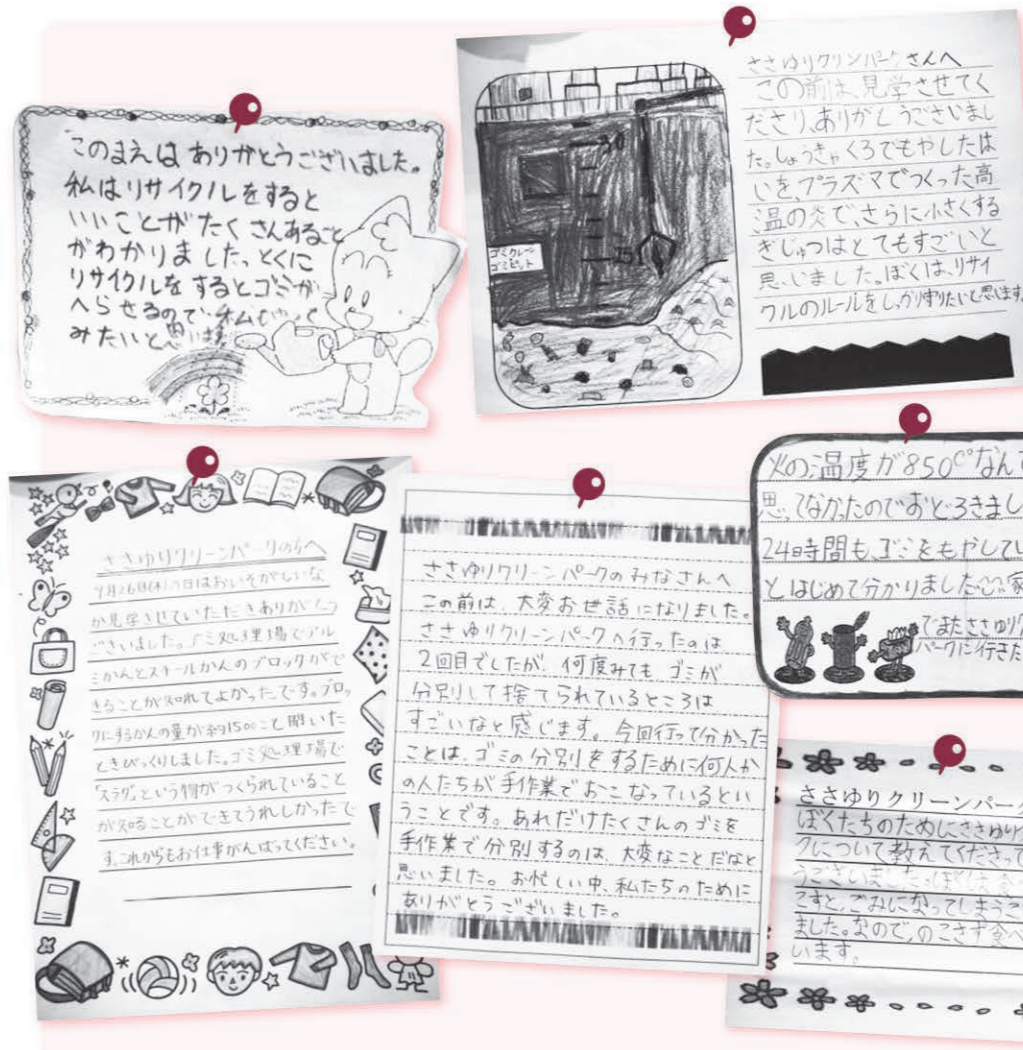 このまえは ありがとうございました。
私はリサイクルをすると
いいことがたくさんあること
がわかりました、とくに
リサイクルをするとゴミが
へらせるので、私もやって
みたいと思います
ささゆりクリンパークさんへ
この前は、見学させてく
ださり、ありがとうございまし
た。しょうきゃくろでもやしたは
いを、プラズマでつくった高
温の炎で、さらに小さくする
ぎじゅつはとてもすごいと
思いました。ぼくは、リサイ
クルのルールをしっかり守りたいと思います
30
25
ゴミクレーン
ゴミピット
ささゆりクリーンパークの方へ
9月26日(木)の日はおいそがしいな
か見学させていただきありがとう
ございました。ゴミ処理場でアル
ミかんとスチールかんのブロックがで
きることが知れてよかったです。ブロッ
クにするかんの量が約1500こと聞いた
ときびっくりしました。ゴミ処理場で
"スラグ"という物がつくられていること
が知ることができてうれしかったで
す。これからもお仕事がんばってください。
ささゆりクリーンパークのみなさんへ
この前は、大変お世話になりました。
ささゆりクリーンパークへ行ったのは
2回目でしたが、何度みても、ゴミが
分別して捨てられているところは
すごいなと感じます。今回行って分かった
ことは、ゴミの分別をするために何人か
の人たちが手作業でおこなっているとい
うことです。あれだけたくさんのゴミを
手作業で分別するのは、大変なことだなと
思いました。お忙しい中、私たちのために
ありがとうございました。
火の温度が850℃なんて
思ってなかったのでおどろきまし
24時間も、ゴミをもやしてい
とはじめて分かりました 家
でまたささゆりク
パークに行きた
ささゆりクリーンパーク
ぼくたちのためにささゆりク
クについて教えてくださって
うございました。ぼくは食べ
こすと、ごみになってしまうこ
ました。なので、のこさず食べ
います。